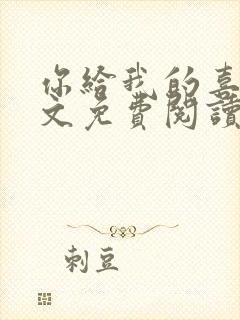 你給我的喜
文免費閱讀
刺豆